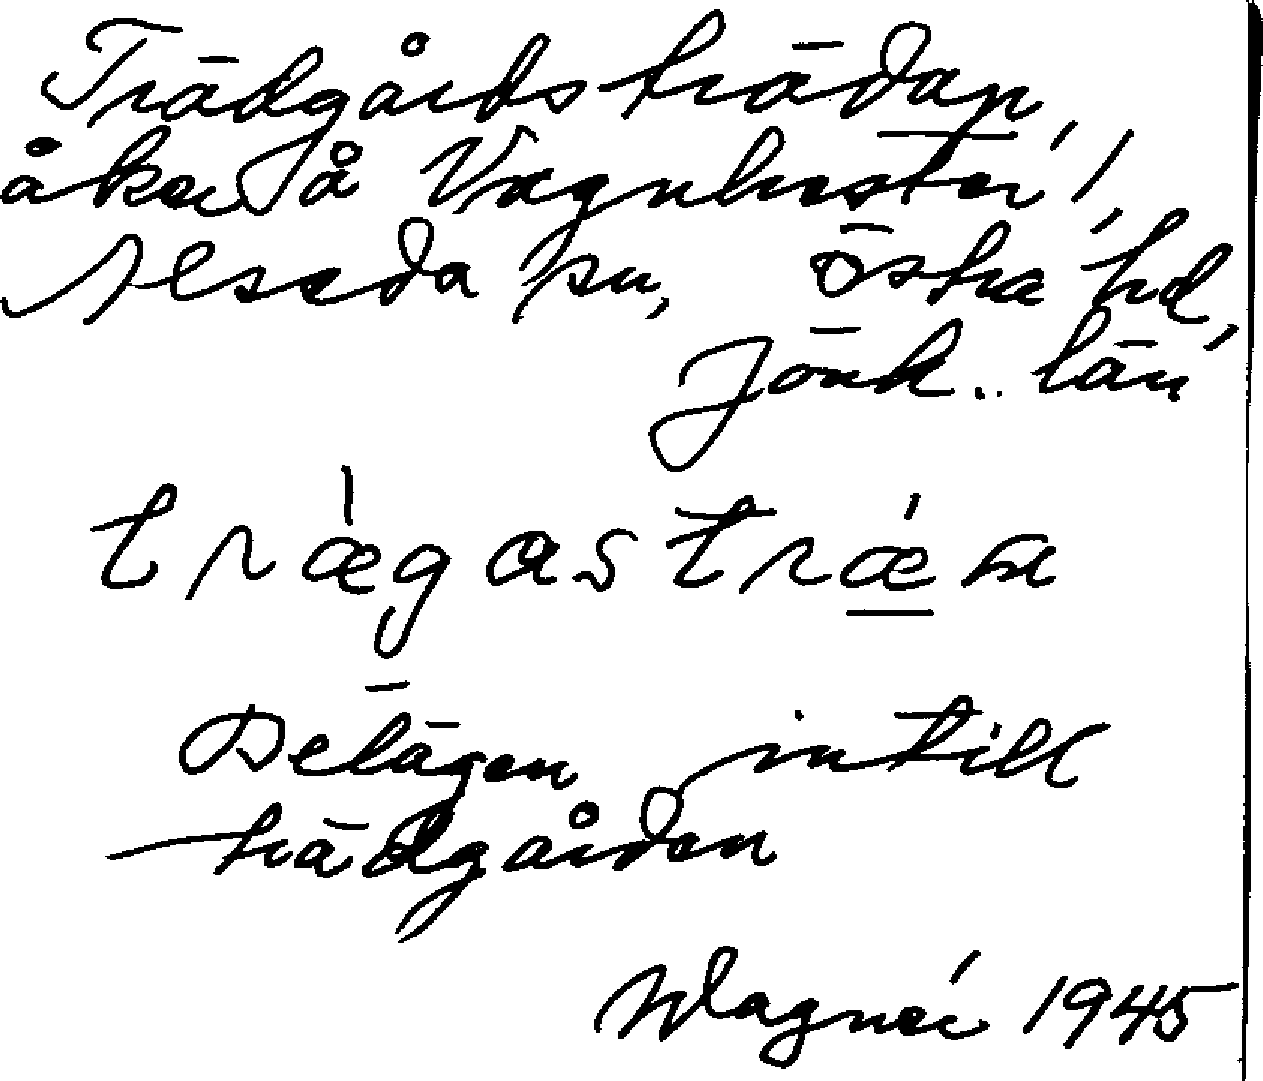 Trädgårdsträdan,
åker å Vagnhester,
Alseda sn, Östra hd,
Jönk. län
trægastræa
Belägen intill
trädgården
Wagnér 1945